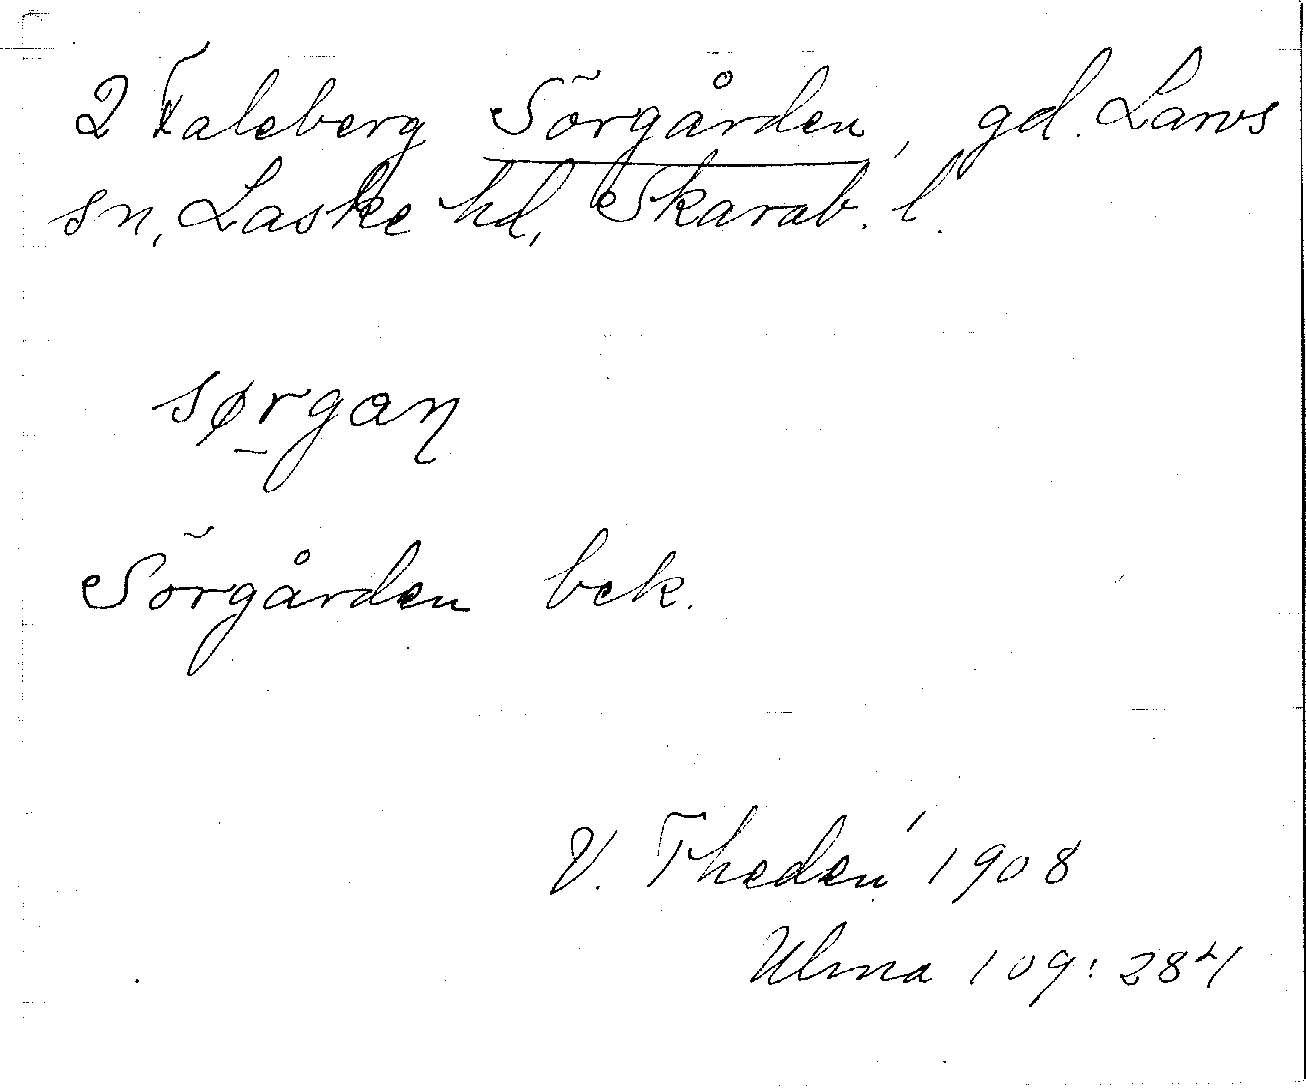 2 Faleberg Sörgården, gd. Larvs
sn, Laske hd, Skarab. l.
sørgaŋ
Sörgården bek.
V. Thedén 1908
Ulma 109:284